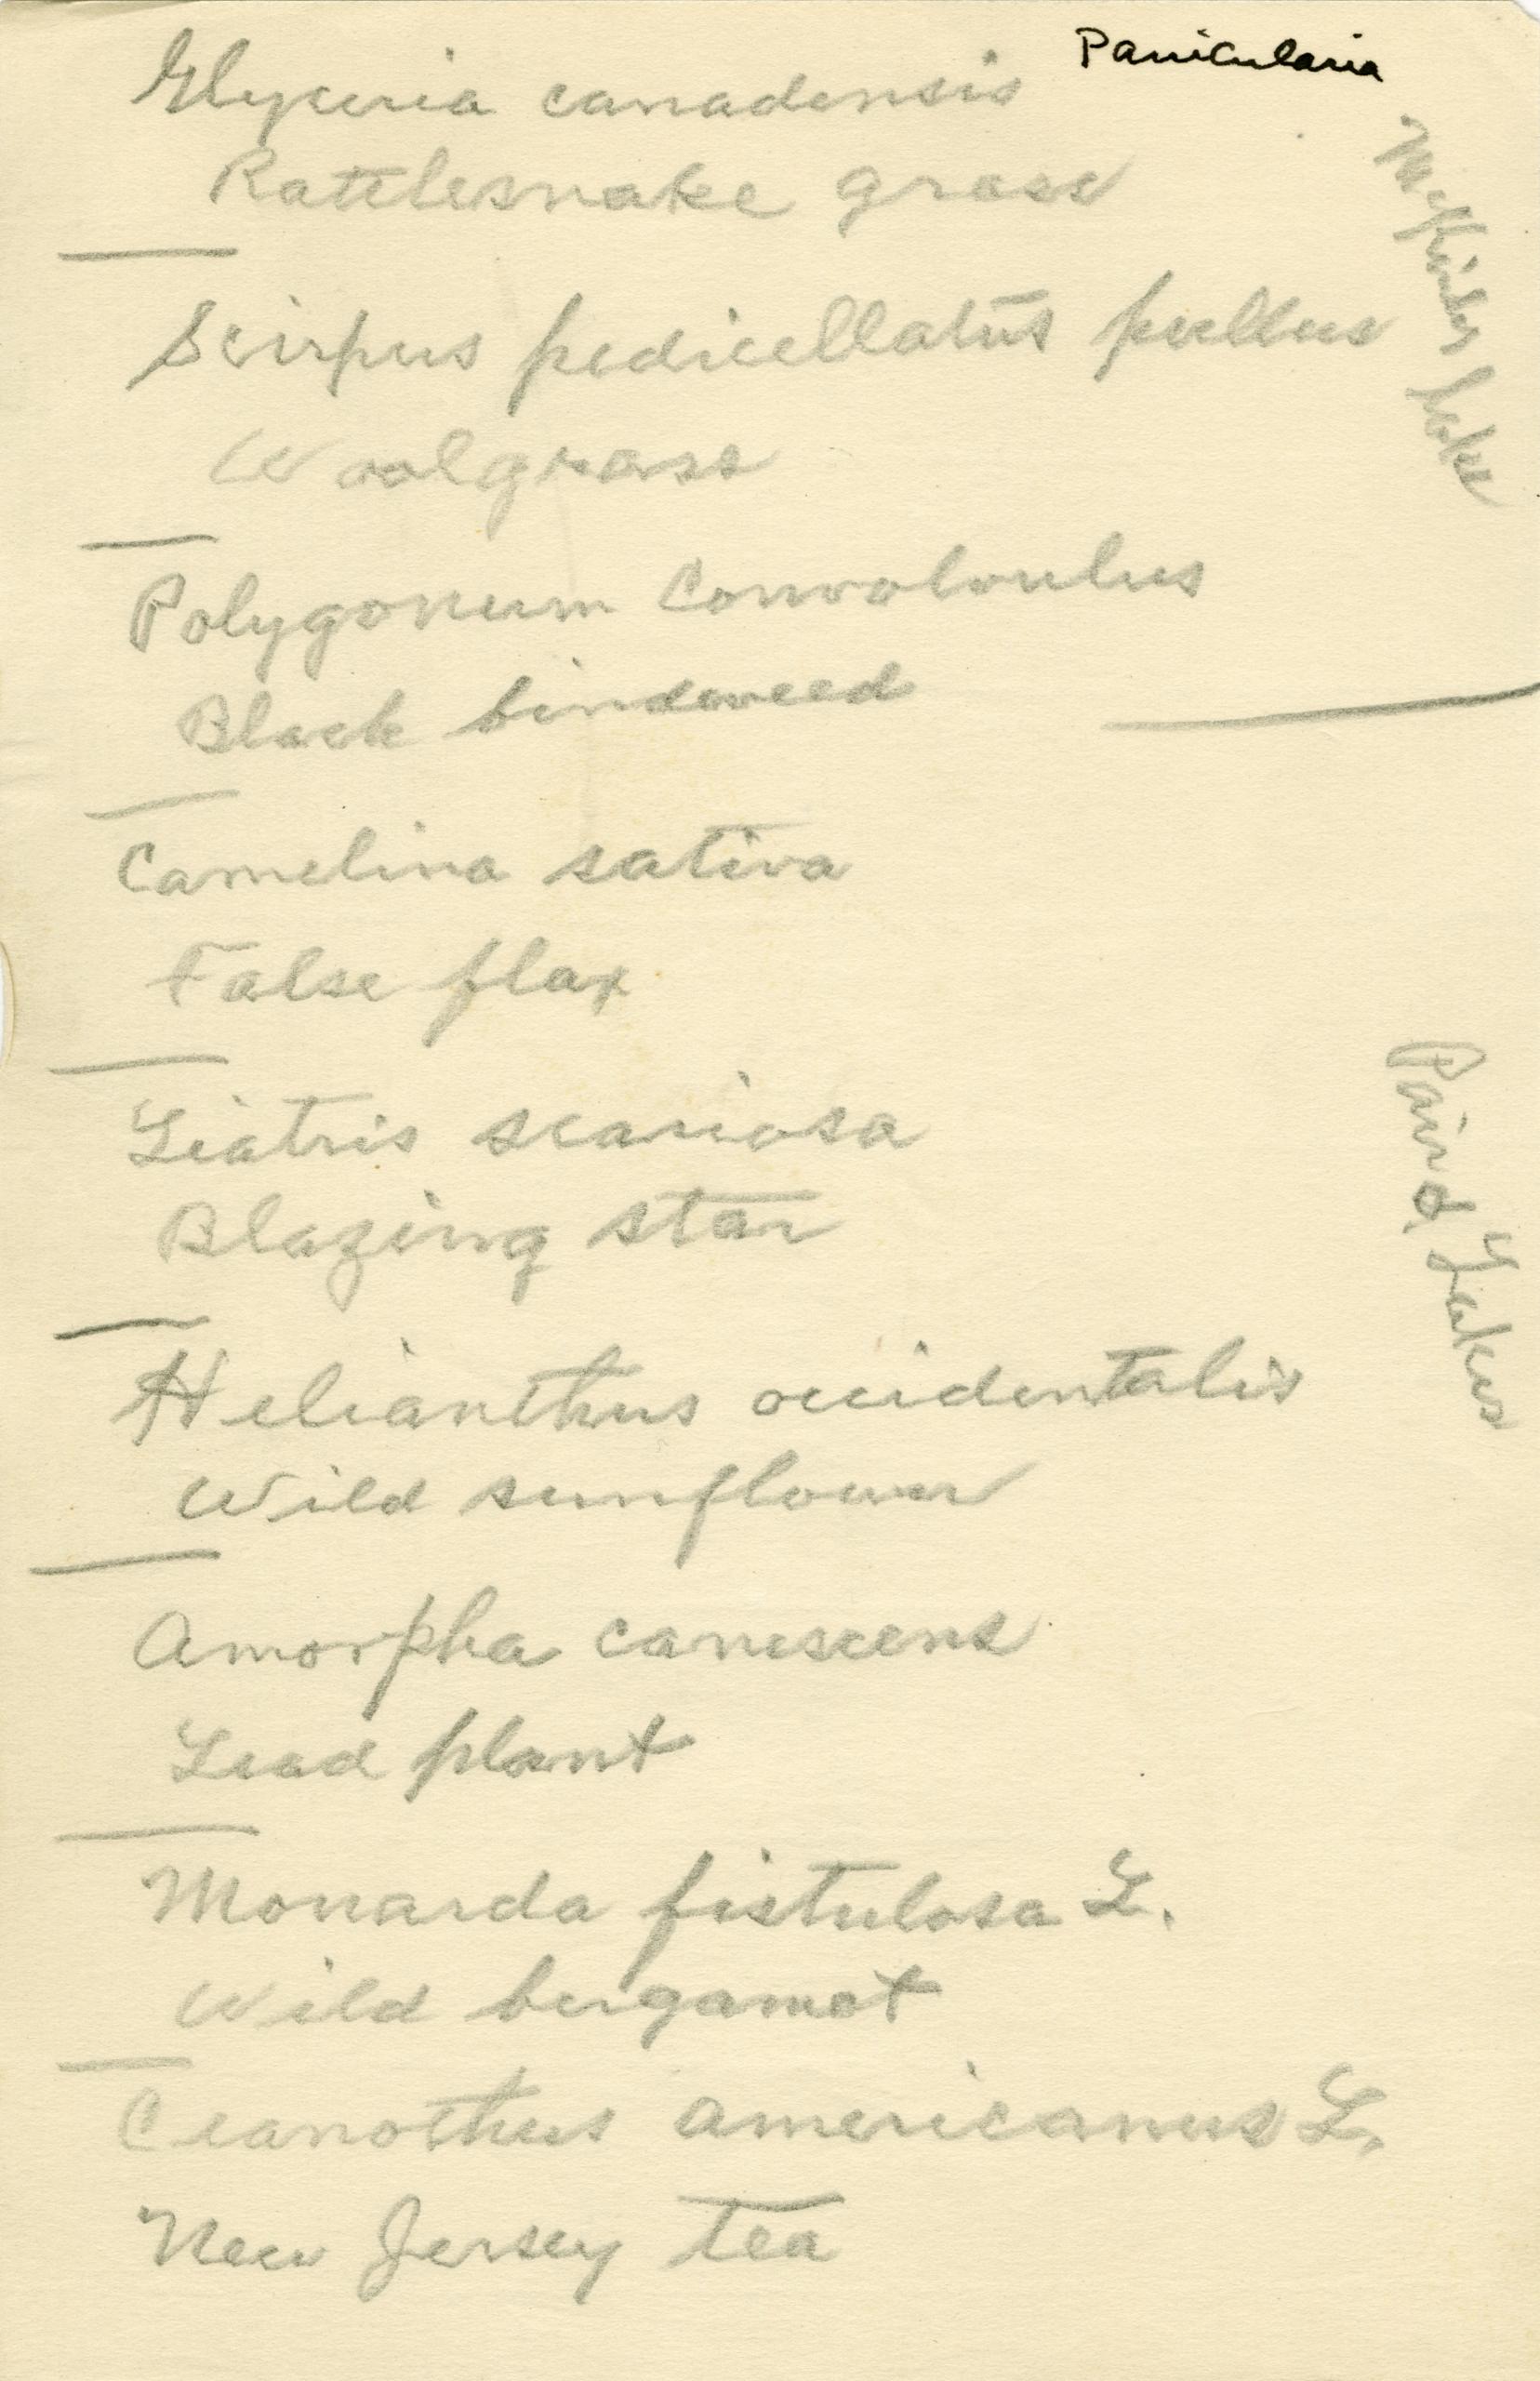 Glyceria canadensis Panicularia
Rattlesnake grass
Scirpus pedicellatus pullus
Woolgrass
Polygonum Convolvulus
Black bindweed
Camelina sativa
False flax
Liatris scariosa
Blazing star
Helianthus occidentalis
Wild sunflower
Amorpha canescens
Lead plant
Monarda fistulosa L.
Wild bergamot
Ceanothus americanus L.
New Jersey tea
Lake
Pair o' Lakes